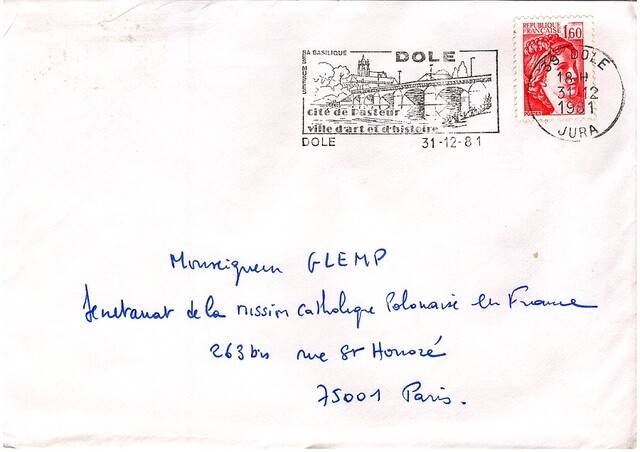 SA BASILIQUE
SES MUSÉES
DOLE
cité de Pasteur
ville d'art et d'histoire
DOLE 31-12-81
REPUBLIQUE FRANÇAISE 1,60
POSTES
39 DOLE
18 H
31-12
1981
JURA
Monseigneur GLEMP
Secrétariat de la Mission Catholique Polonaise en France
263 bis rue St Honoré
75001 Paris.